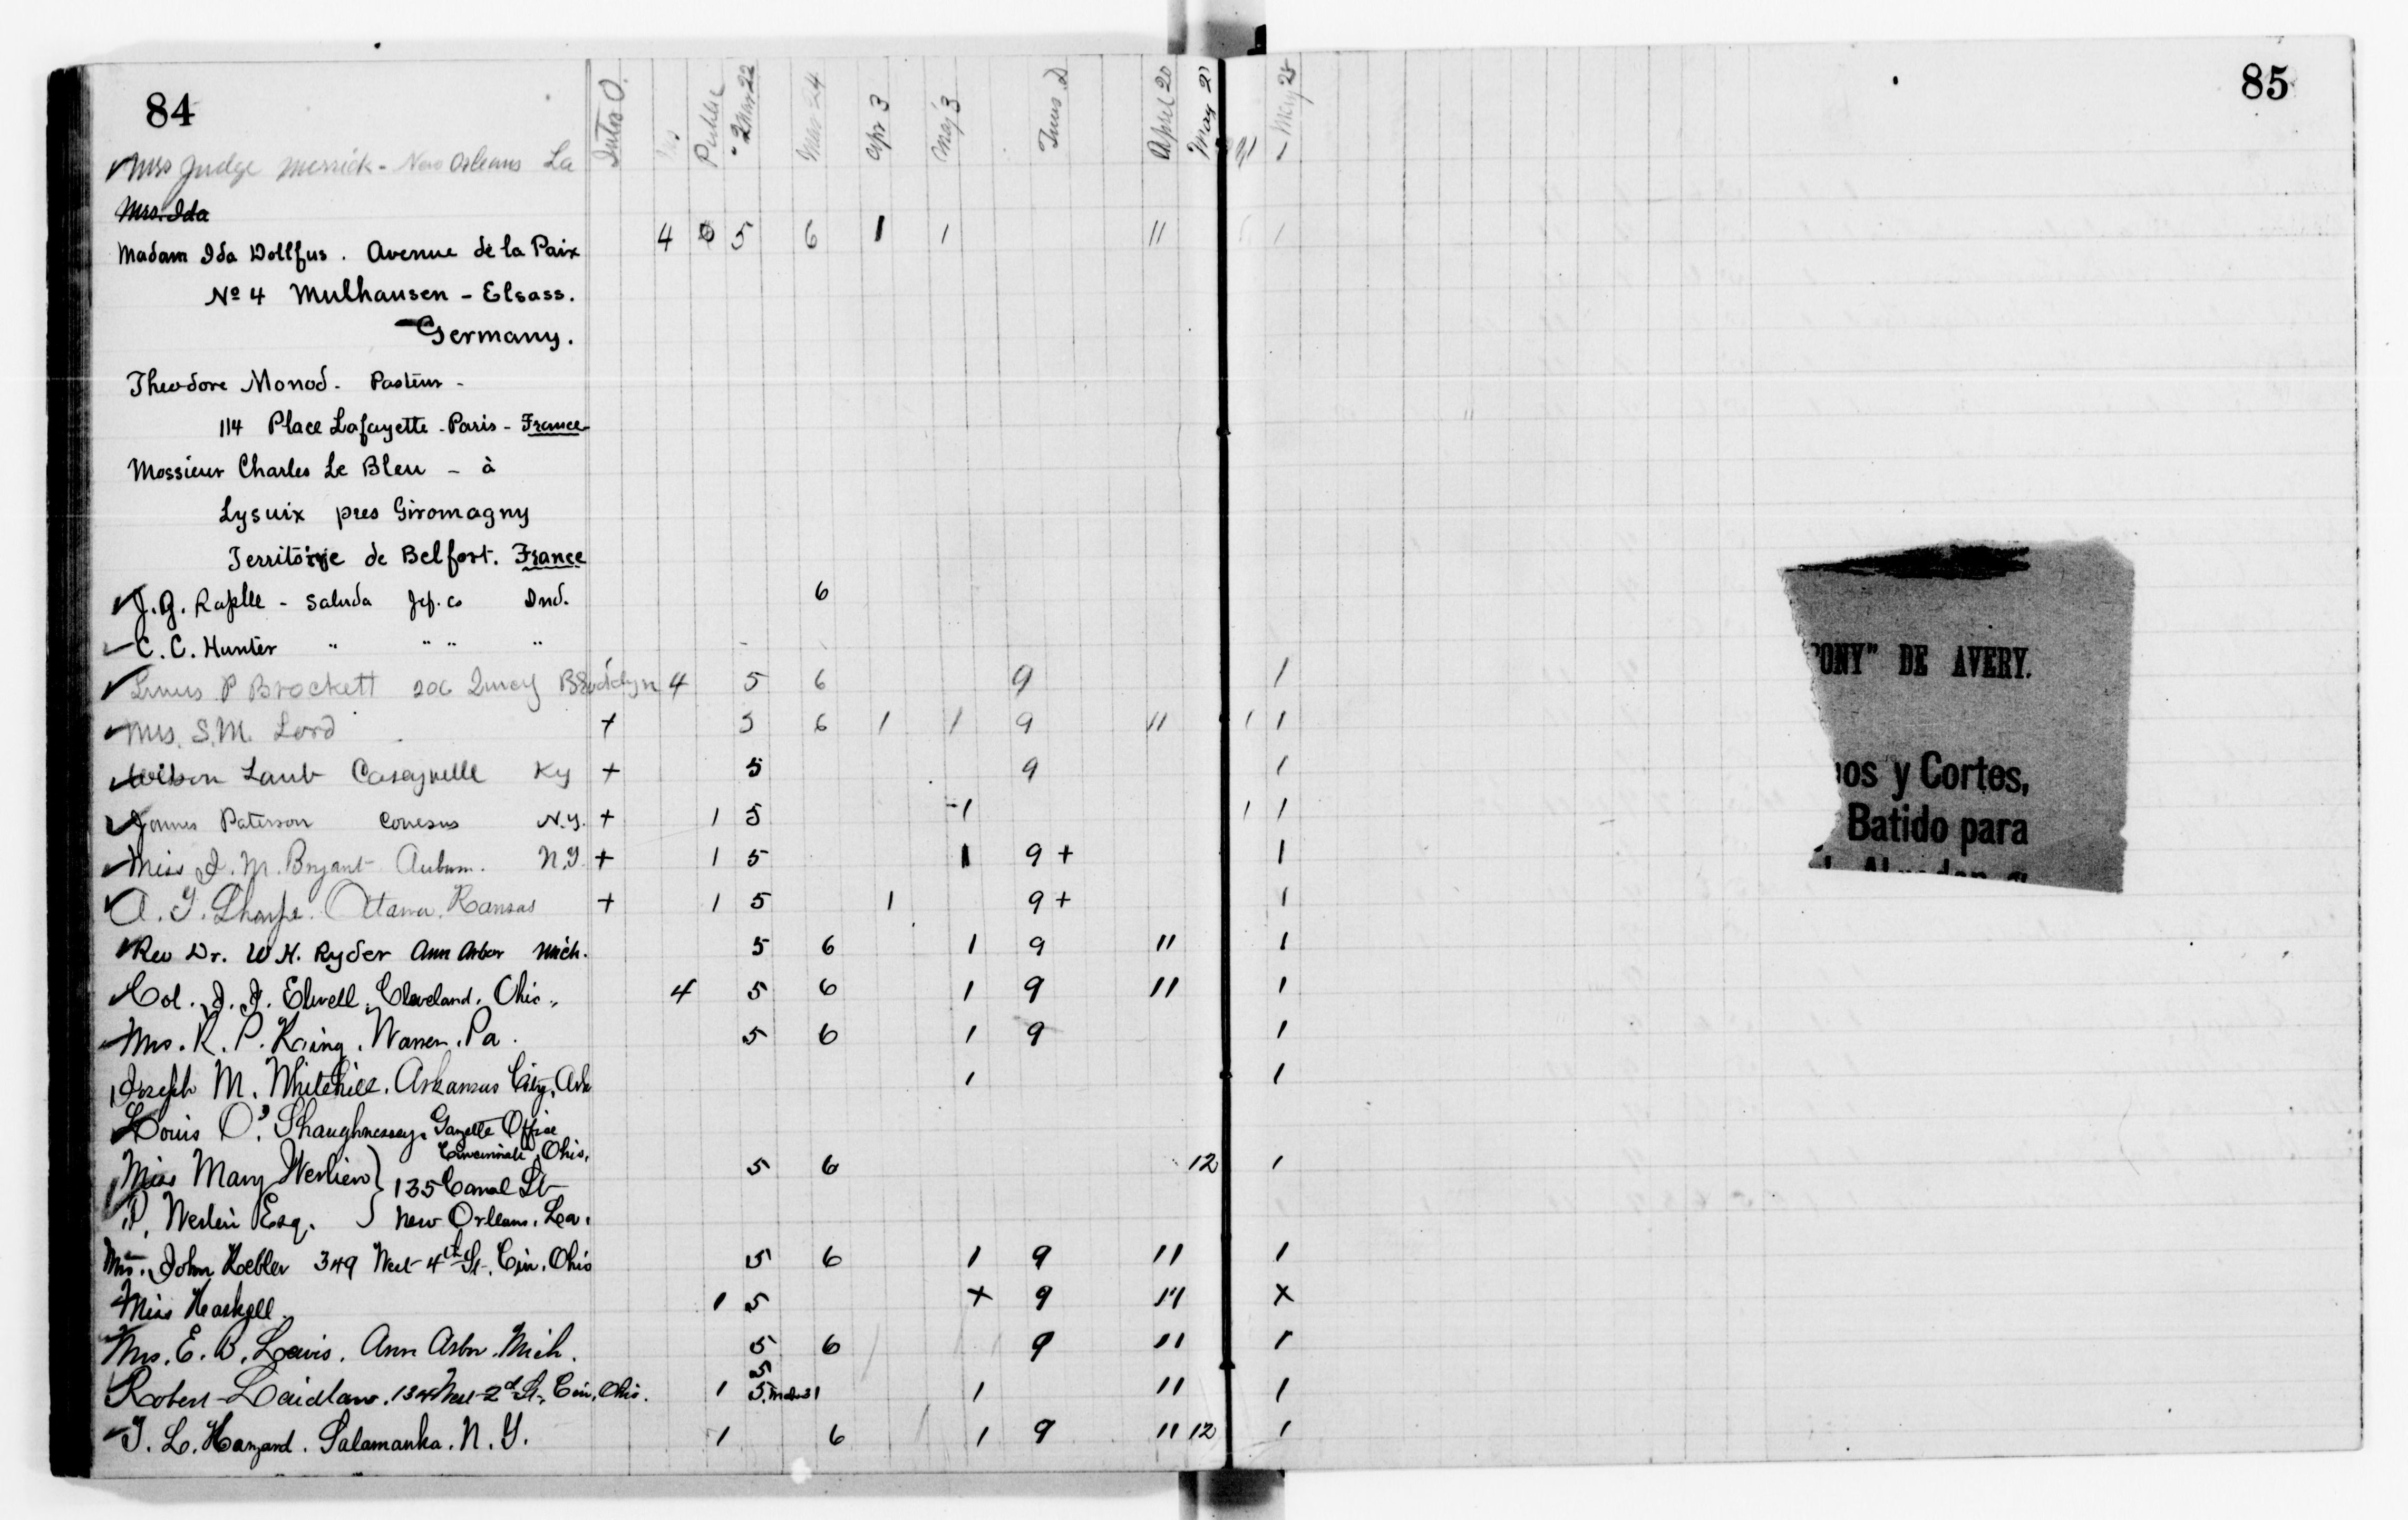 84
85
Public
Mar 22
Mar 24
Apr 3
May 3
April 20
May 2
May 28
Mrs Judge Merrick - New Orleans La
Mrs. Ida
Madam Ida Dollfus. Avenue de la Paix 4 6 5 6 1 1 11 1
No 4 Mulhausen - Elsass.
Germany.
Theodore Monod - Pasteur -
114 Place Lafayette - Paris - France
Mossieur Charles Le Bleu - à
Lysuix pres Giromagny
Territoire de Belfort. France
Saluda Jef. Co Ind. 6
C. C. Hunter " " " "
P Brockett 206 Quincy Brooklyn 4 5 6 9 1
Mrs. S. M. Lord + 5 6 1 1 9 11 1 1
Wilson Laub Caseyville Ky + 5 9 1
James Paterson Conesus N.Y. + 1 5 1 1 1
Miss J. M. Bryant Auburn. N.Y. + 1 5 1 9 + 1
Sharpe. Ottawa. Kansas + 1 5 1 9 + 1
Rev Dr. W. H. Ryder Ann Arbor Mich. 5 6 1 9 11 1
Col. J. J. Elwell. Cleveland. Ohio. 4 5 6 1 9 11 1
Mrs. R. P. King. Warren. Pa. 5 6 1 9 1
Joseph M. Whitehill. Arkansas City, Ark 1 1
Louis O'Shaughnessey. Gazette Office
Cincinnati Ohio.
Miss Mary Werlien } 135 Canal St 5 6 12 1
P. Werlein Esq. } New Orleans. La.
Mrs. John Kebler 349 West 4th St. Cin. Ohio 5 6 1 9 11 1
Miss Haskell. 1 5 + 9 11 X
Mrs. E. B. Lewis. Ann Arbor. Mich. 5 6 9 11 1
5
Robert Laidlaw. 134 West 2d St. Cin. Ohio. 1 5 1 11 1
Salamanka. N. Y. 1 6 1 9 11 12 1
PONY" DE AVERY.
nos y Cortes,
Batido para